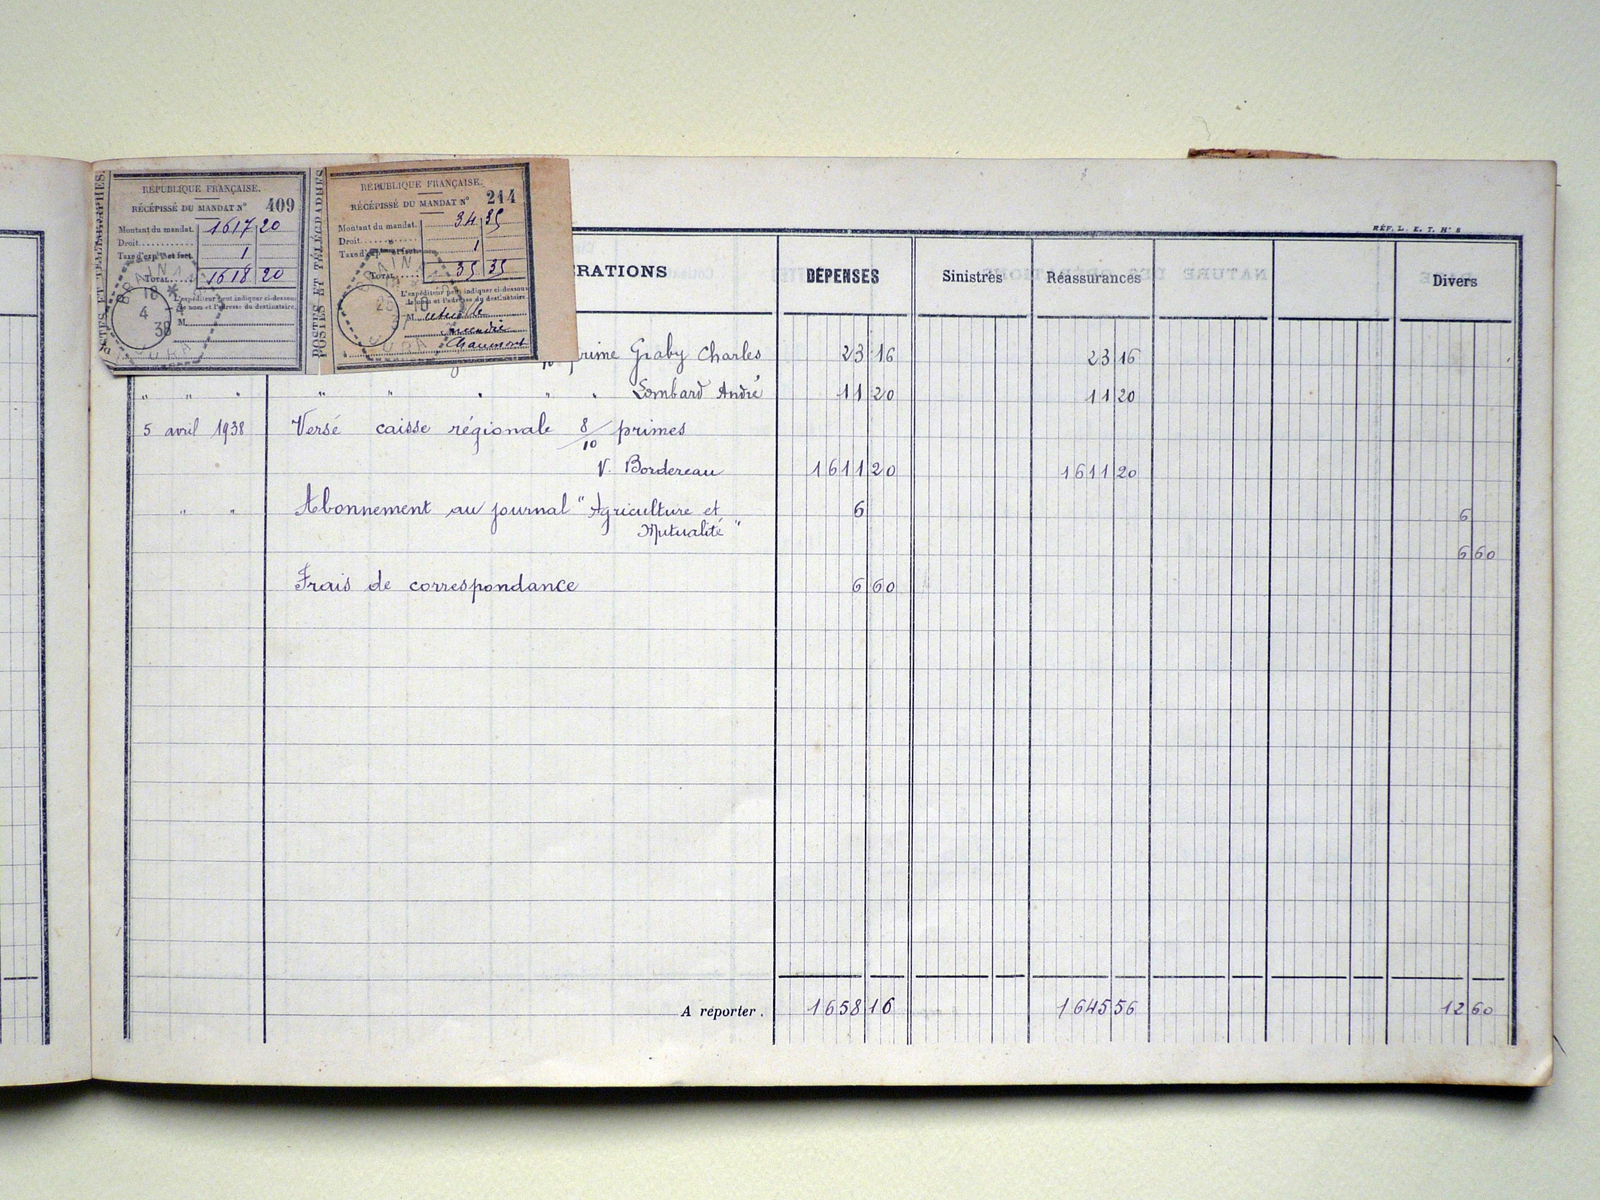 POSTES ET TÉLÉGRAPHES.
RÉPUBLIQUE FRANÇAISE.
RÉCÉPISSÉ DU MANDAT N° 409
Montant du mandat. 1617 20
Droit
Taxe d'exp. et fact. 1
TOTAL 1618 20
L'expéditeur peut indiquer ci-dessous
le nom et l'adresse du destinataire.
M
18 *
4 -4
38
JURA
POSTES ET TÉLÉGRAPHES
RÉPUBLIQUE FRANÇAISE.
RÉCÉPISSÉ DU MANDAT N° 214
Montant du mandat. 34 35
Droit
1
TOTAL 35 35
L'expéditeur peut indiquer ci-dessous
le nom et l'adresse du destinataire.
M
Incendie
Chaumont
JURA
RÉF. L. E. T. N° 8
RATIONS DÉPENSES Sinistres Réassurances Divers
prime Graby Charles 23 16 23 16
" " " " " " " " Lombard André 11 20 11 20
5 avril 1938 Versé caisse régionale 8/10 primes
V. Bordereau 1611 20 1611 20
" " Abonnement au journal "Agriculture et 6 6
Mutualité"
6 60
Frais de correspondance 6 60
A reporter. 1658 16 1645 56 12 60